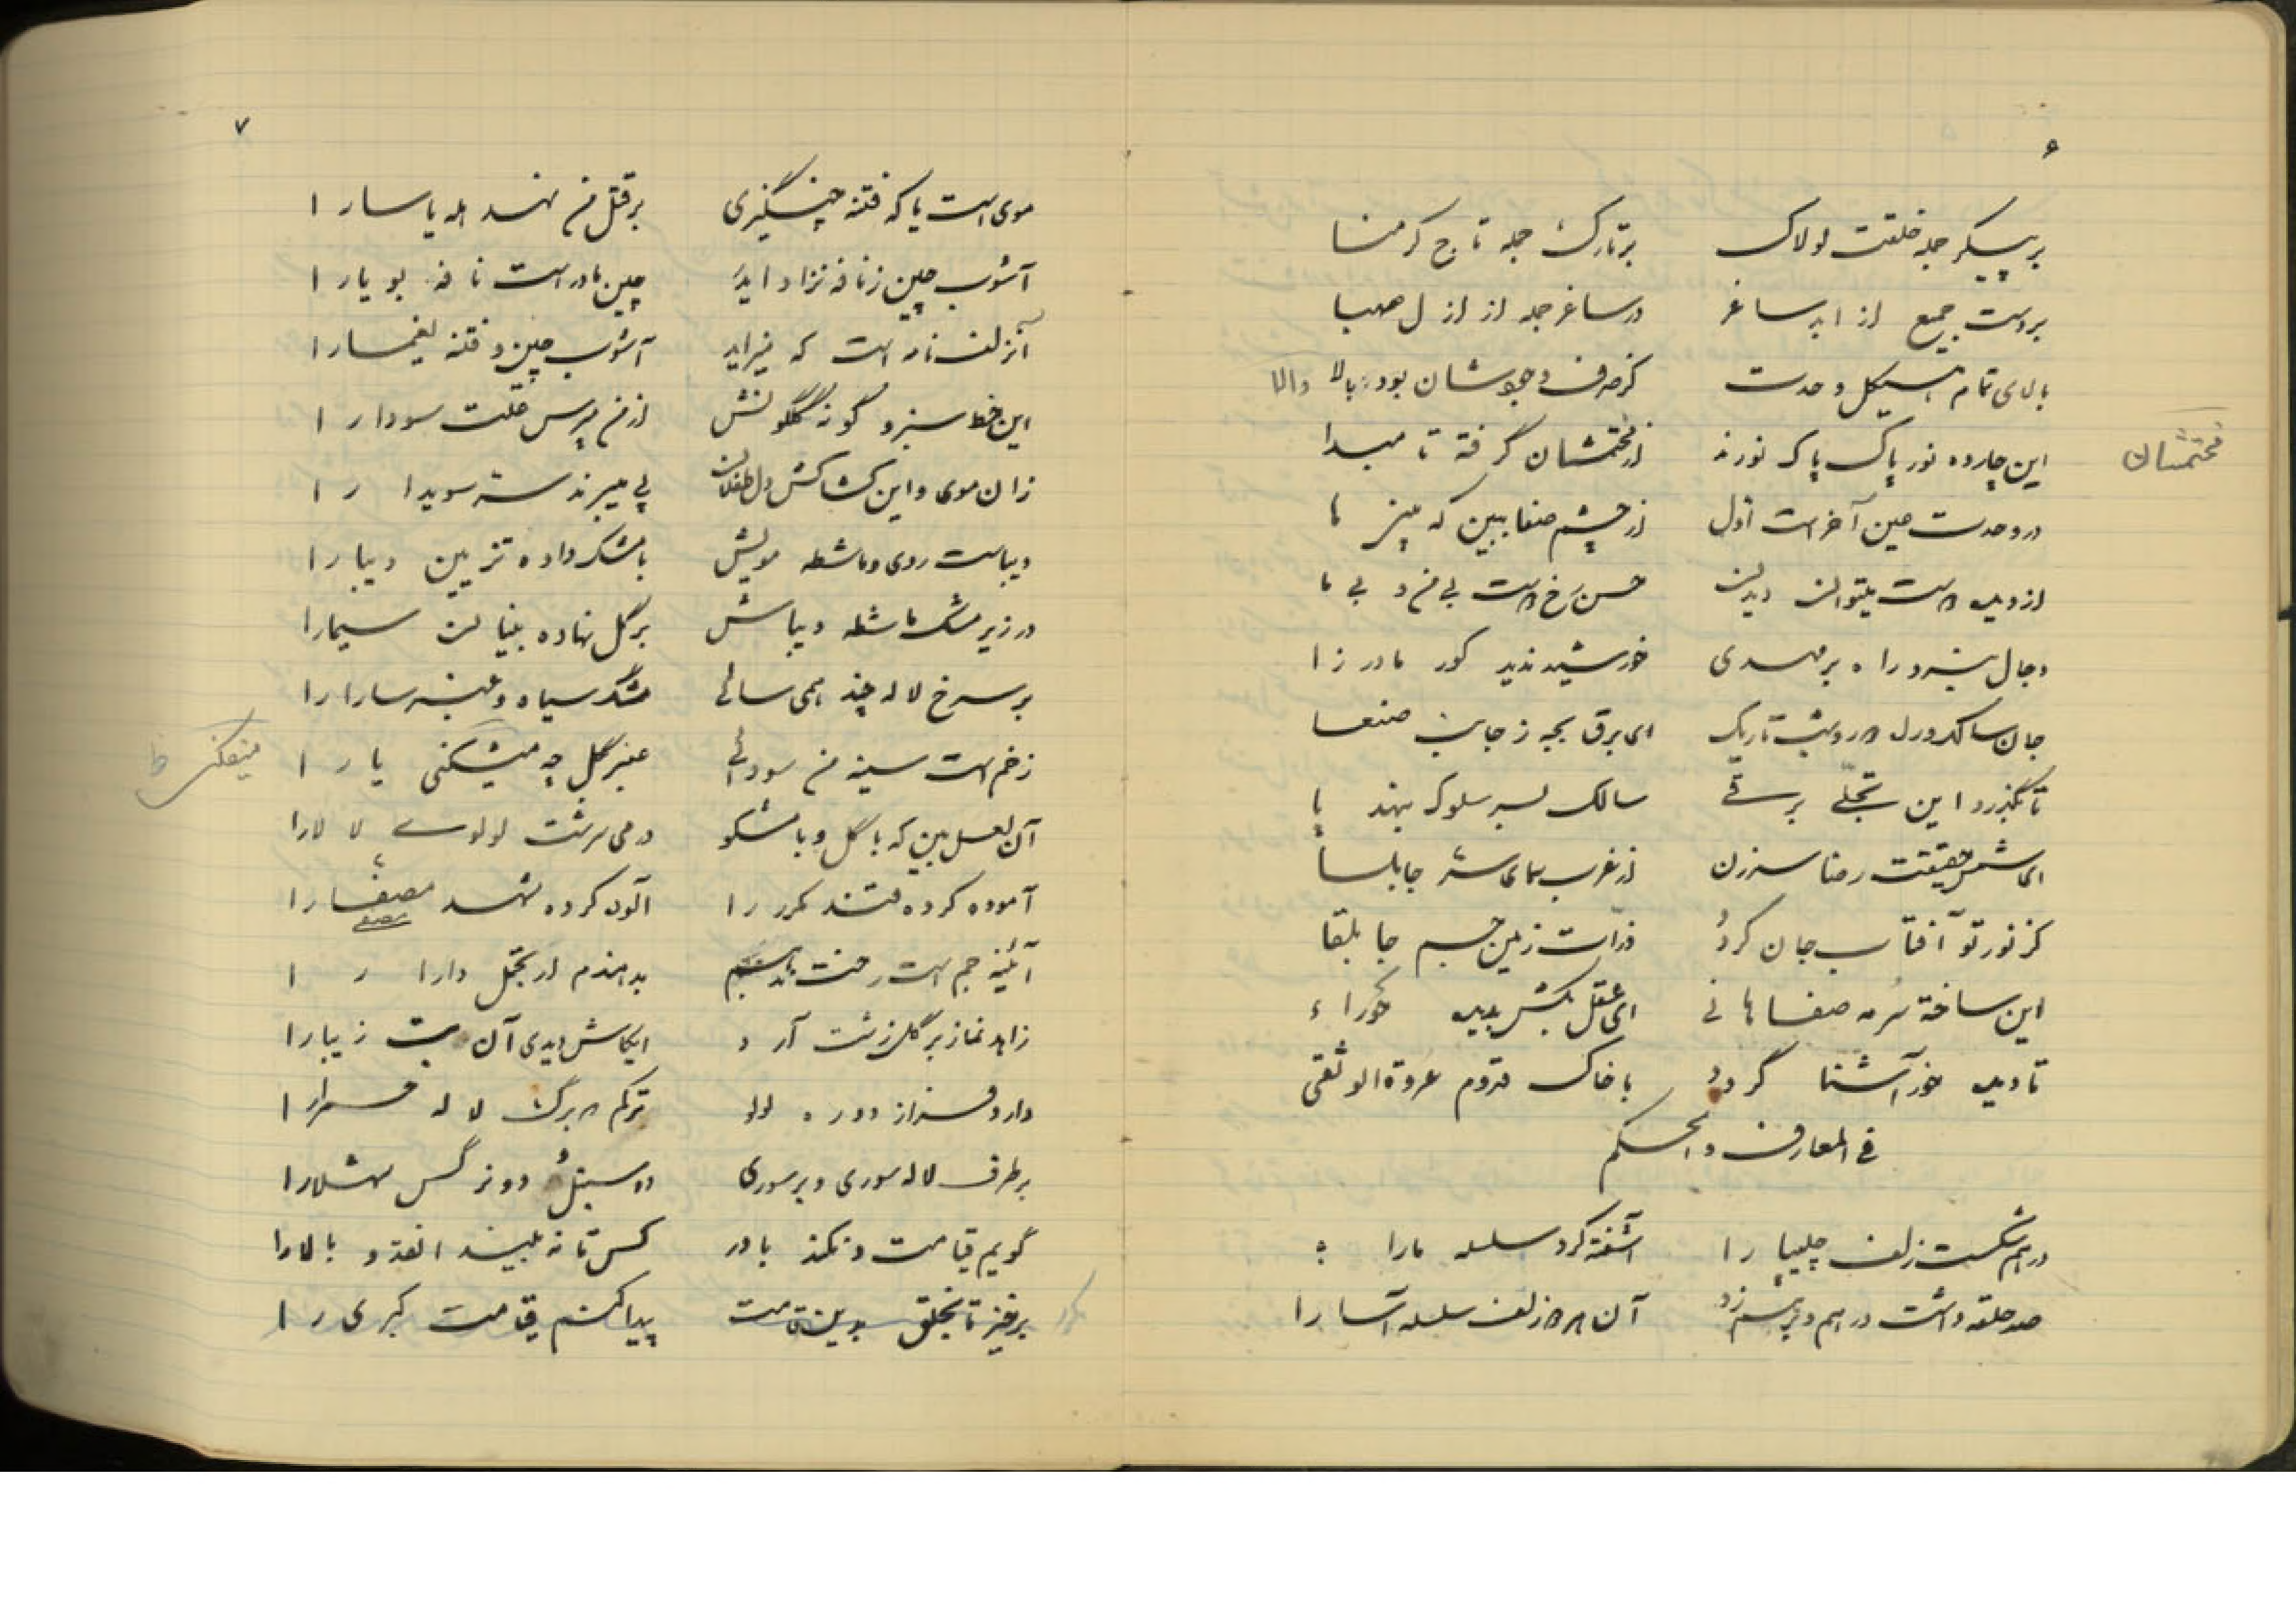 ۶
بر پیکر جمله خلعت لولاک بر تارک جمله تاج کرمنا
بر دست جمیع از ابد ساغر در ساغر جمله از ازل صهبا
بالای تمام هیکل وحدت کز صرف وجوبشان بود بالا والا
این چارده نور پاک پاک نورند از مختمشان گرفته تا مبدا
مختمشان
در وحدت عین آخر است اول از چشم صفا ببین که بینی ها
از دیده اوست میتوان دیدن حسن رخ اوست بی من و بی ما
دجال نبرد راه بر مهدی خورشید ندید کور مادرزا
جان سالک و دل اوست و شب تاریک ای برق بجه ز جانب صنعا
تا نگذرد این تجلی برقی سالک بسر سلوک بنهد پا
ای شمس حقیقت رضا سر زن از غرب سمای شهر جابلسا
کز نور تو آفتاب جان گردد ذرات زمین جسم جابلقا
این ساخته سرمه صفاهانی ای عقل بکش بدیده حوراء
تا دیده حور آشنا گردد با خاک قدوم عروة الوثقی
فی المعارف و الحکم
در هم شکست زلف چلیپا را آشفته کرد سلسله ما را
صد حلقه داشت در هم و بر هم زد آن زلف سلسله آسا را
۷
موی است یا که فتنه چنگیزی بر قتل من نهد اله یاسا را
آشوب چین ز نافه نزاد اید چین مادر است نافه بویا را
آن زلف نافه است که میزاید آشوب چین و فتنه یغما را
این خط سبز و گونه گلگونش از من مپرس علت سودا را
زان موی و این کشاکش دل طفلان پی میبرند سته سویدا را
دیباست روی و ماشطه مویش با مشک داده تزیین دیبا را
در زیر مشک ماشطه دیباش بر گل نهاده بنیان سیما را
بر سرخ لاله چند همی سائی مشک سیاه و عنبر سارا را
زخم است سینه من سودائی عنبر گل چه میشکنی یارا
میفکنی ظ
آن لعل بین که با گل و با مشکو در می سرشت لولوی لالا را
آموده کرده قند مکرر را آلوده کرده شهد مصفا را
آئینه جم است رخت بدهم اندرم از تجمل دارا را
زاهد نماز بر گل زشت آرد ایکاش دیدی آن بت زیبا را
دارد فراز دو رده لولو ترکم دو برگ لاله حمرا را
بر طرف لاله سوری و بر سوری دو سنبل و دو نرگس شهلا را
گویم قیامت و نکند باور کس تا نه بیند آنقد و بالا را
برخیز تا بخلق بدین قامت پیدا کنم قیامت کبری را